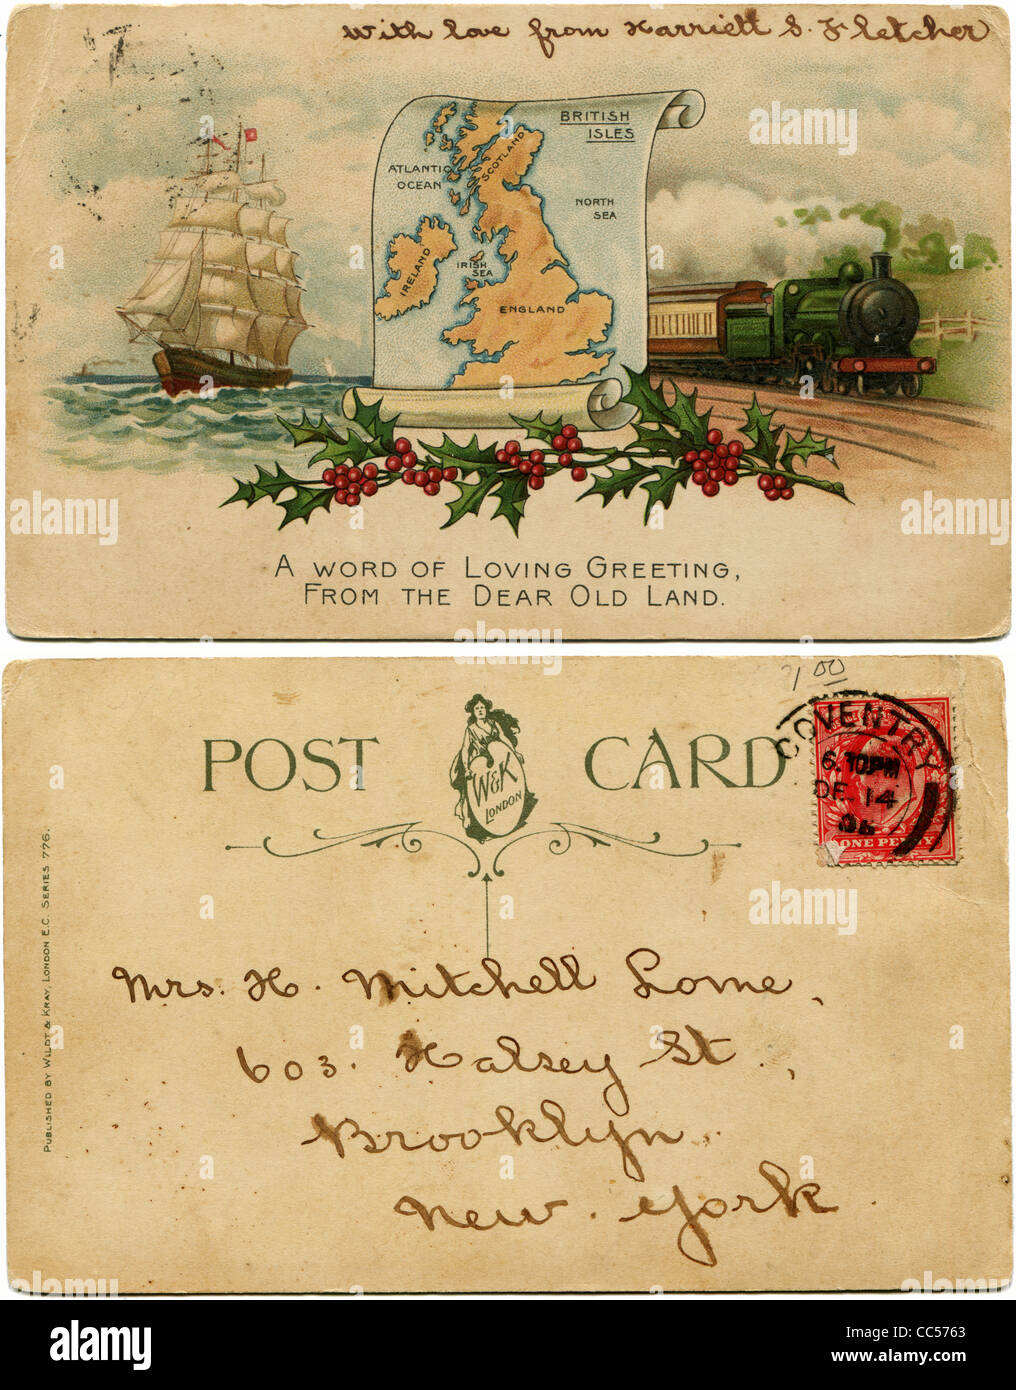 With love from Harriett S. Fletcher
BRITISH
ISLES
ATLANTIC
OCEAN
SCOTLAND
NORTH
SEA
IRELAND
IRISH
SEA
ENGLAND
A WORD OF LOVING GREETING,
FROM THE DEAR OLD LAND.
POST CARD
W&K
LONDON
COVENTRY
6. 10PM
DE 14
06
ONE PENNY
PUBLISHED BY WILDT & KRAY, LONDON E.C. SERIES 776.
Mrs. H. Mitchell Lome,
603. Halsey St.,
Brooklyn.
New York.
alamy
Image ID: CC5763
www.alamy.com